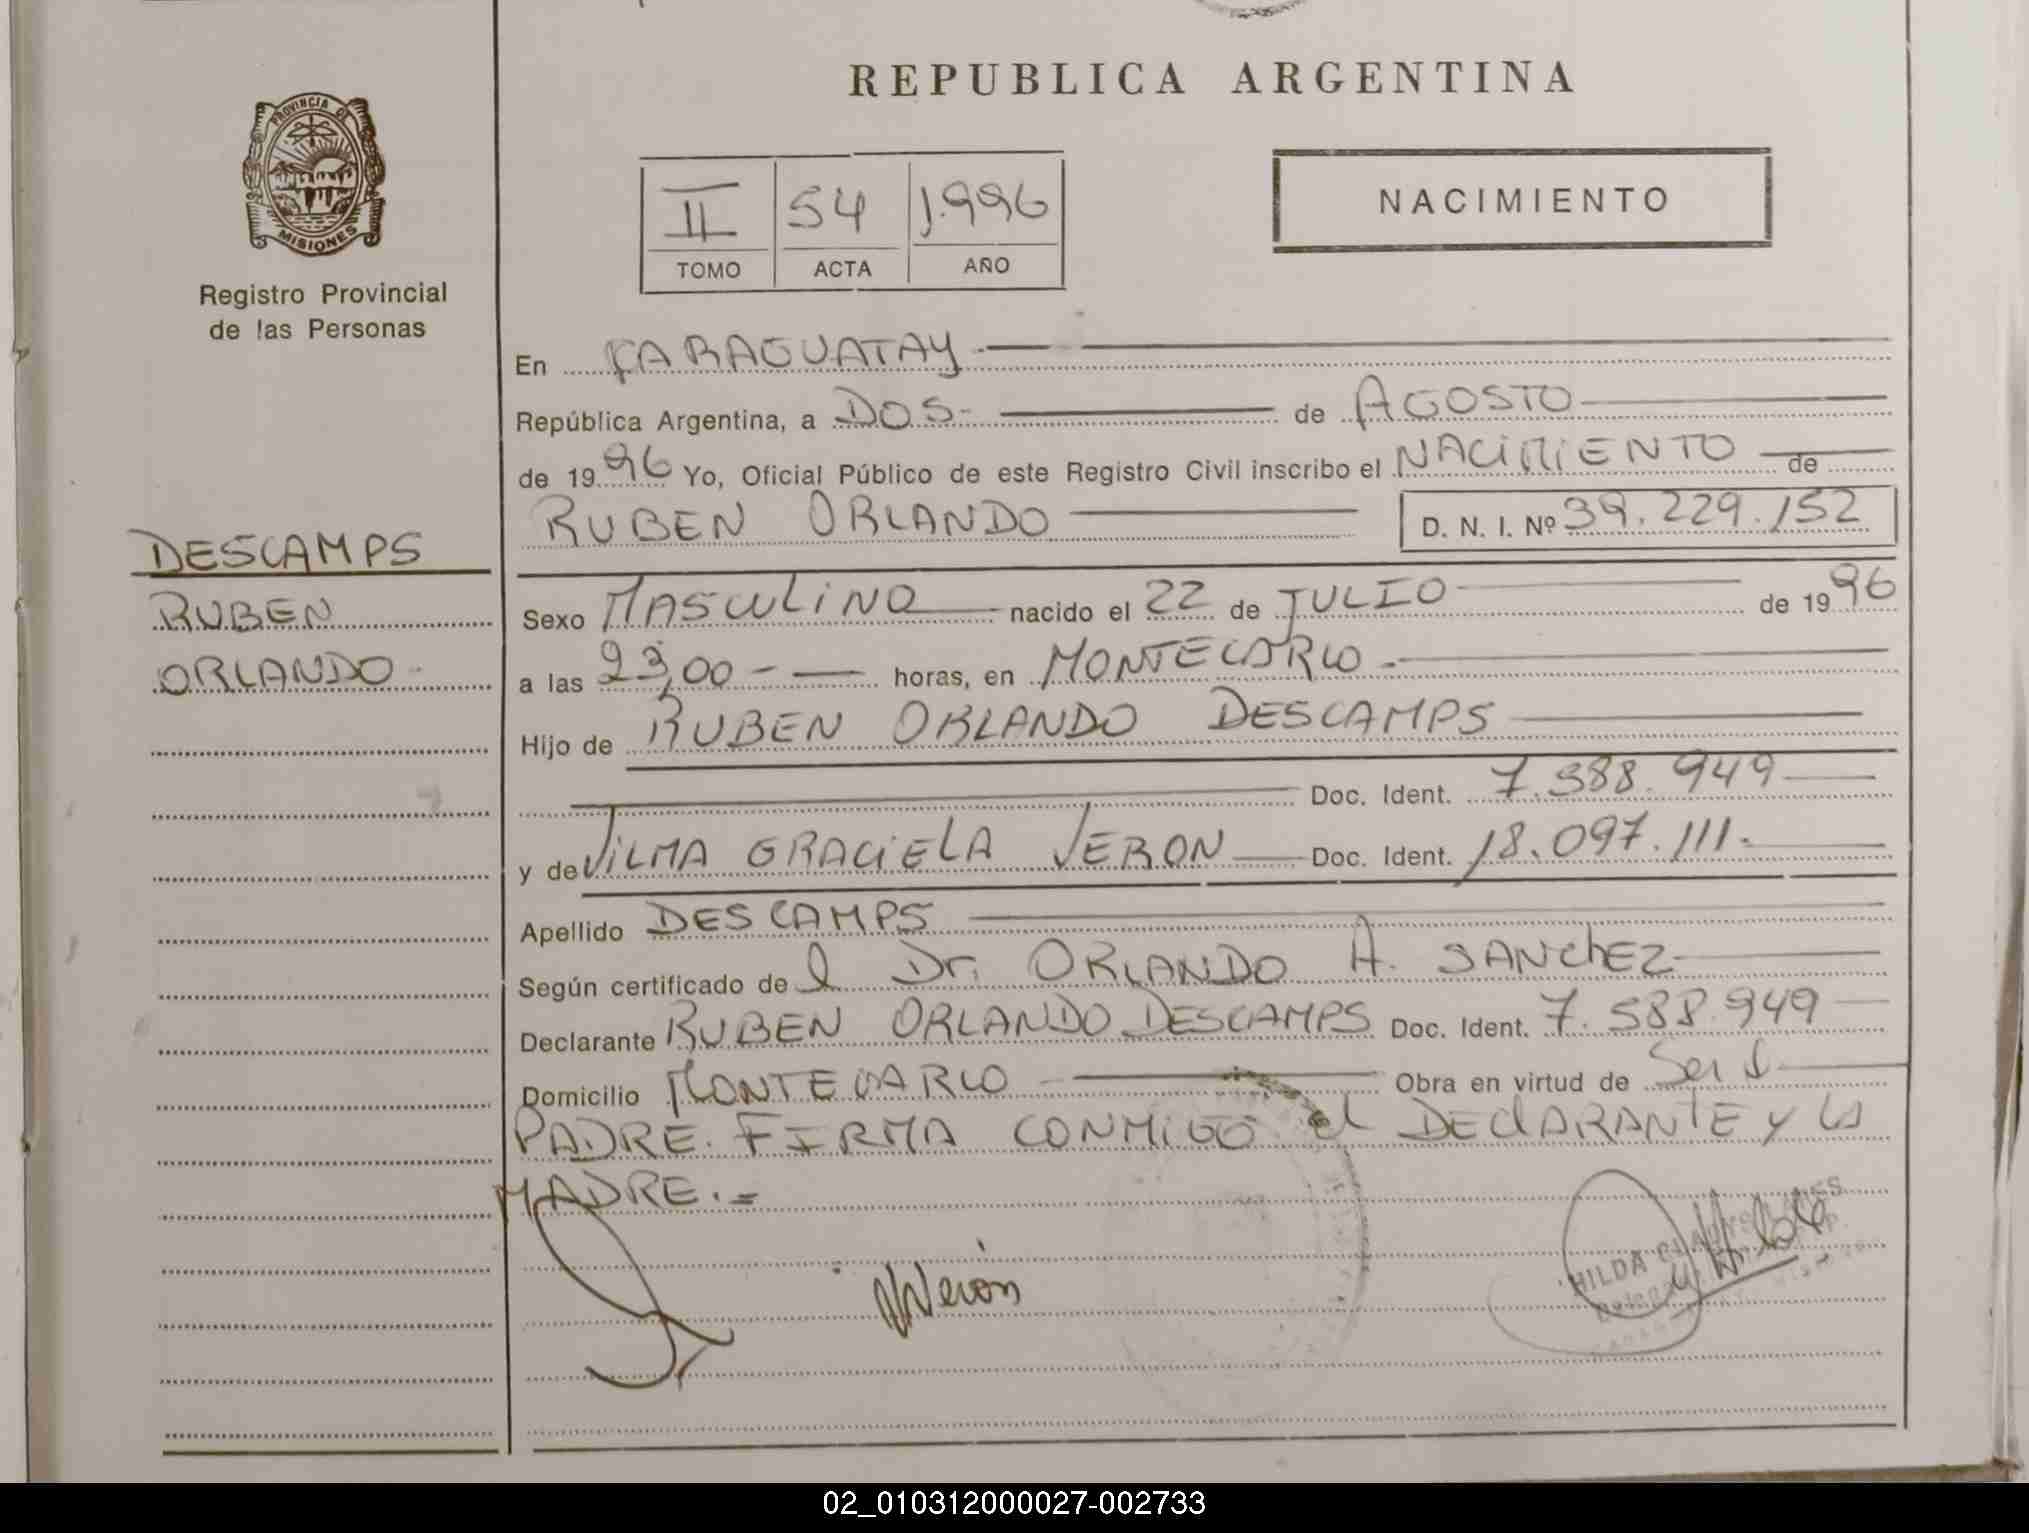 REPUBLICA ARGENTINA
PROVINCIA DE
MISIONES
Registro Provincial
de las Personas
II 54 1.996
TOMO ACTA AÑO
NACIMIENTO
En CARAGUATAY.-
República Argentina, a DOS- de AGOSTO
de 1996 Yo, Oficial Público de este Registro Civil inscribo el NACIMIENTO de
RUBEN ORLANDO D. N. I. Nº 39.229.152
DESCAMPS
RUBEN
ORLANDO-
Sexo MASCULINO nacido el 22 de JULIO de 1996
a las 23,00- horas, en MONTECARLO.-
Hijo de RUBEN ORLANDO DESCAMPS
Doc. Ident. 7.588.949
y de VILMA GRACIELA VERON Doc. Ident. 18.097.111.-
Apellido DESCAMPS
Según certificado del Dr. ORLANDO A. SANCHEZ
Declarante RUBEN ORLANDO DESCAMPS Doc. Ident. 7.588.949
Domicilio MONTECARLO Obra en virtud de Ser el
PADRE. FIRMA CONMIGO el DEClARANTE y LA
MADRE.=
VVerón
HILDA
02_010312000027-002733